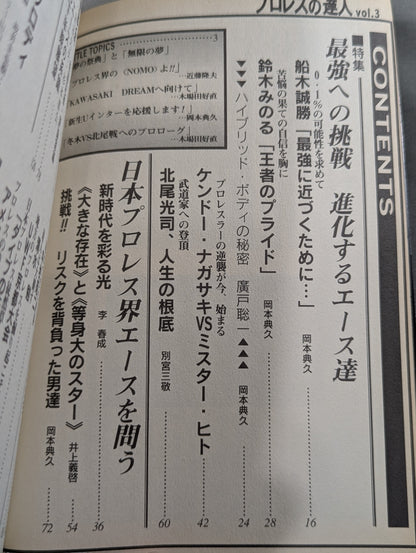 プロレスの達人 vol.3
CONTENTS
■特集
最強への挑戦 進化するエース達
0・1%の可能性を求めて
船木誠勝「最強に近づくために…」 岡本典久 16
苦悩の果ての自信を胸に
鈴木みのる「王者のプライド」 岡本典久 28
▼▼▼ハイブリッド・ボディの秘密 廣戸聡一▲▲▲ 岡本典久 24
プロレスラーの逆襲が今、始まる
ケンドー・ナガサキVSミスター・ヒト 42
武道家への登頂
北尾光司、人生の根底 別宮三敬 60
日本プロレス界エースを問う
新時代を彩る光 李 春成 36
《大きな存在》と《等身大のスター》 井上義啓 54
挑戦!! リスクを背負った男達 岡本典久 72
TLE TOPICS 3
の祭典」と「無限の夢」
プロレス界の〈NOMO〉よ!!」 近藤隆夫
KAWASAKI DREAMへ向けて」 木場田好直
新生Uインターを応援します!」 岡本典久
冬木VS北尾戦へのプロローグ」 木場田好直